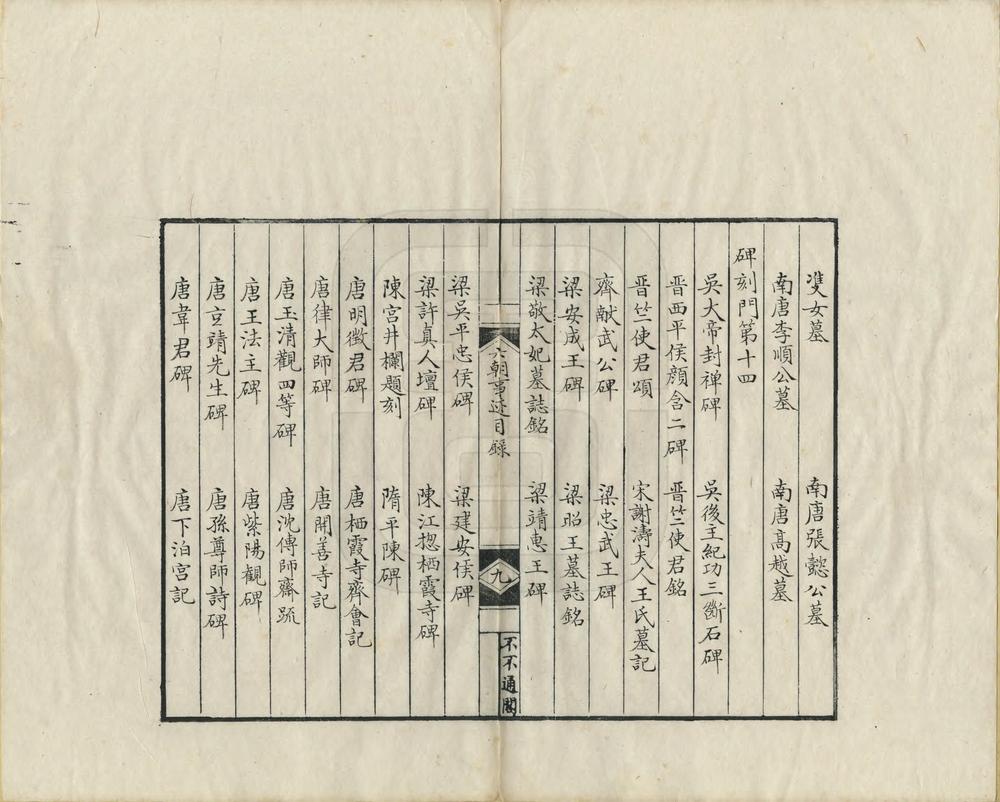 雙女墓　南唐張懿公墓
南唐李順公墓　南唐高越墓
碑刻門第十四
吳大帝封禅碑　吳後主紀功三斷石碑
晋西平侯顔含二碑　晋竺使君銘
晋竺使君頌　宋謝濤夫人王氏墓記
齊献武公碑　梁忠武王碑
梁安成王碑　梁昭王墓誌銘
梁敬太妃墓誌銘　梁靖惠王碑
六朝事迹目錄
九
不不通閣
梁吳平忠侯碑　梁建安侯碑
梁許真人壇碑　陳江揔栖霞寺碑
陳宮井欄題刻　隋平陳碑
唐明徵君碑　唐栖霞寺齊會記
唐律大師碑　唐開善寺記
唐玉清觀四等碑　唐沈傳師齋䟽
唐王法主碑　唐紫陽観碑
唐玄靖先生碑　唐孫尊師詩碑
唐韋君碑　唐下泊宮記